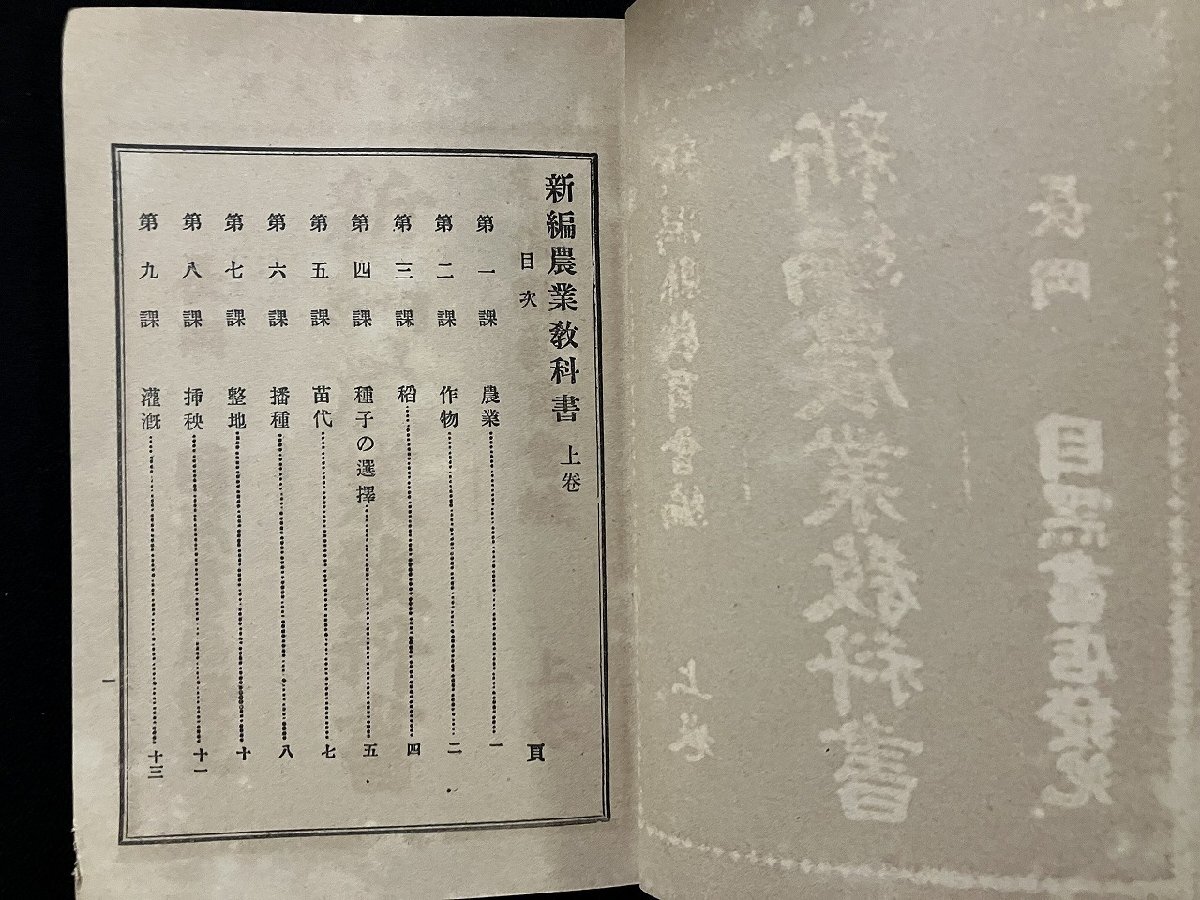 新潟縣教育會編　上卷
新編農業教科書
長岡　目黑書店發兌
新編農業教科書　上卷
目次　頁
第一課　農業………一
第二課　作物………二
第三課　稻………四
第四課　種子の選擇………五
第五課　苗代………七
第六課　播種………八
第七課　整地………十
第八課　挿秧………十一
第九課　灌漑………十三
一